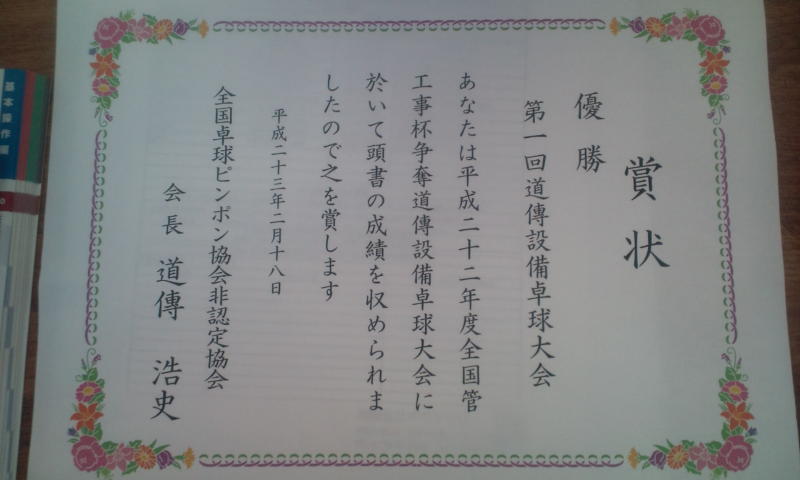 賞状
優勝
第一回道傳設備卓球大会
あなたは平成二十二年度全国管
工事杯争奪道傳設備卓球大会に
於いて頭書の成績を収められま
したので之を賞します
平成二十三年二月十八日
全国卓球ピンポン協会非認定協会
会長 道傳 浩史
基本操作編